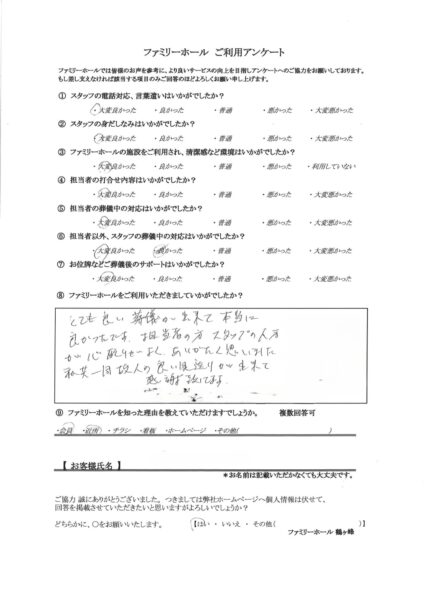 ファミリーホール ご利用アンケート
ファミリーホールでは皆様のお声を参考に、より良いサービスの向上を目指しアンケートへのご協力をお願いしております。
もし差し支えなければ該当する項目のみご回答のほどよろしくお願い申し上げます。
① スタッフの電話対応、言葉遣いはいかがでしたか？
・大変良かった ・良かった ・普通 ・悪かった ・大変悪かった
② スタッフの身だしなみはいかがでしたか？
・大変良かった ・良かった ・普通 ・悪かった ・大変悪かった
③ ファミリーホールの施設をご利用され、清潔感など環境はいかがでしたか？
・大変良かった ・良かった ・普通 ・悪かった ・利用していない
④ 担当者の打合せ内容はいかがでしたか？
・大変良かった ・良かった ・普通 ・悪かった ・大変悪かった
⑤ 担当者の葬儀中の対応はいかがでしたか？
・大変良かった ・良かった ・普通 ・悪かった ・大変悪かった
⑥ 担当者以外、スタッフの葬儀中の対応はいかがでしたか？
・大変良かった ・良かった ・普通 ・悪かった ・大変悪かった
⑦ お位牌などご葬儀後のサポートはいかがでしたか？
・大変良かった ・良かった ・普通 ・悪かった ・大変悪かった
⑧ ファミリーホールをご利用いただきましていかがでしたか？
とても良い葬儀が出来て本当に
良かったです。担当者の方 スタッフの人方
が心配りせよく ありがたく思いました
私共一同故人の良い見送りが出来て
感謝致してます。
⑨ ファミリーホールを知った理由を教えていただけますでしょうか。 複数回答可
・会員 ・近所 ・チラシ ・看板 ・ホームページ ・その他( )
【 お客様氏名 】
＊お名前は記載いただかなくても大丈夫です。
ご協力 誠にありがとうございました。つきましては弊社ホームページへ個人情報は伏せて、
回答を掲載させていただきたいと思いますがよろしいでしょうか？
どちらかに、〇をお願いいたします。 【はい ・ いいえ ・ その他( )】
ファミリーホール 鶴ヶ峰